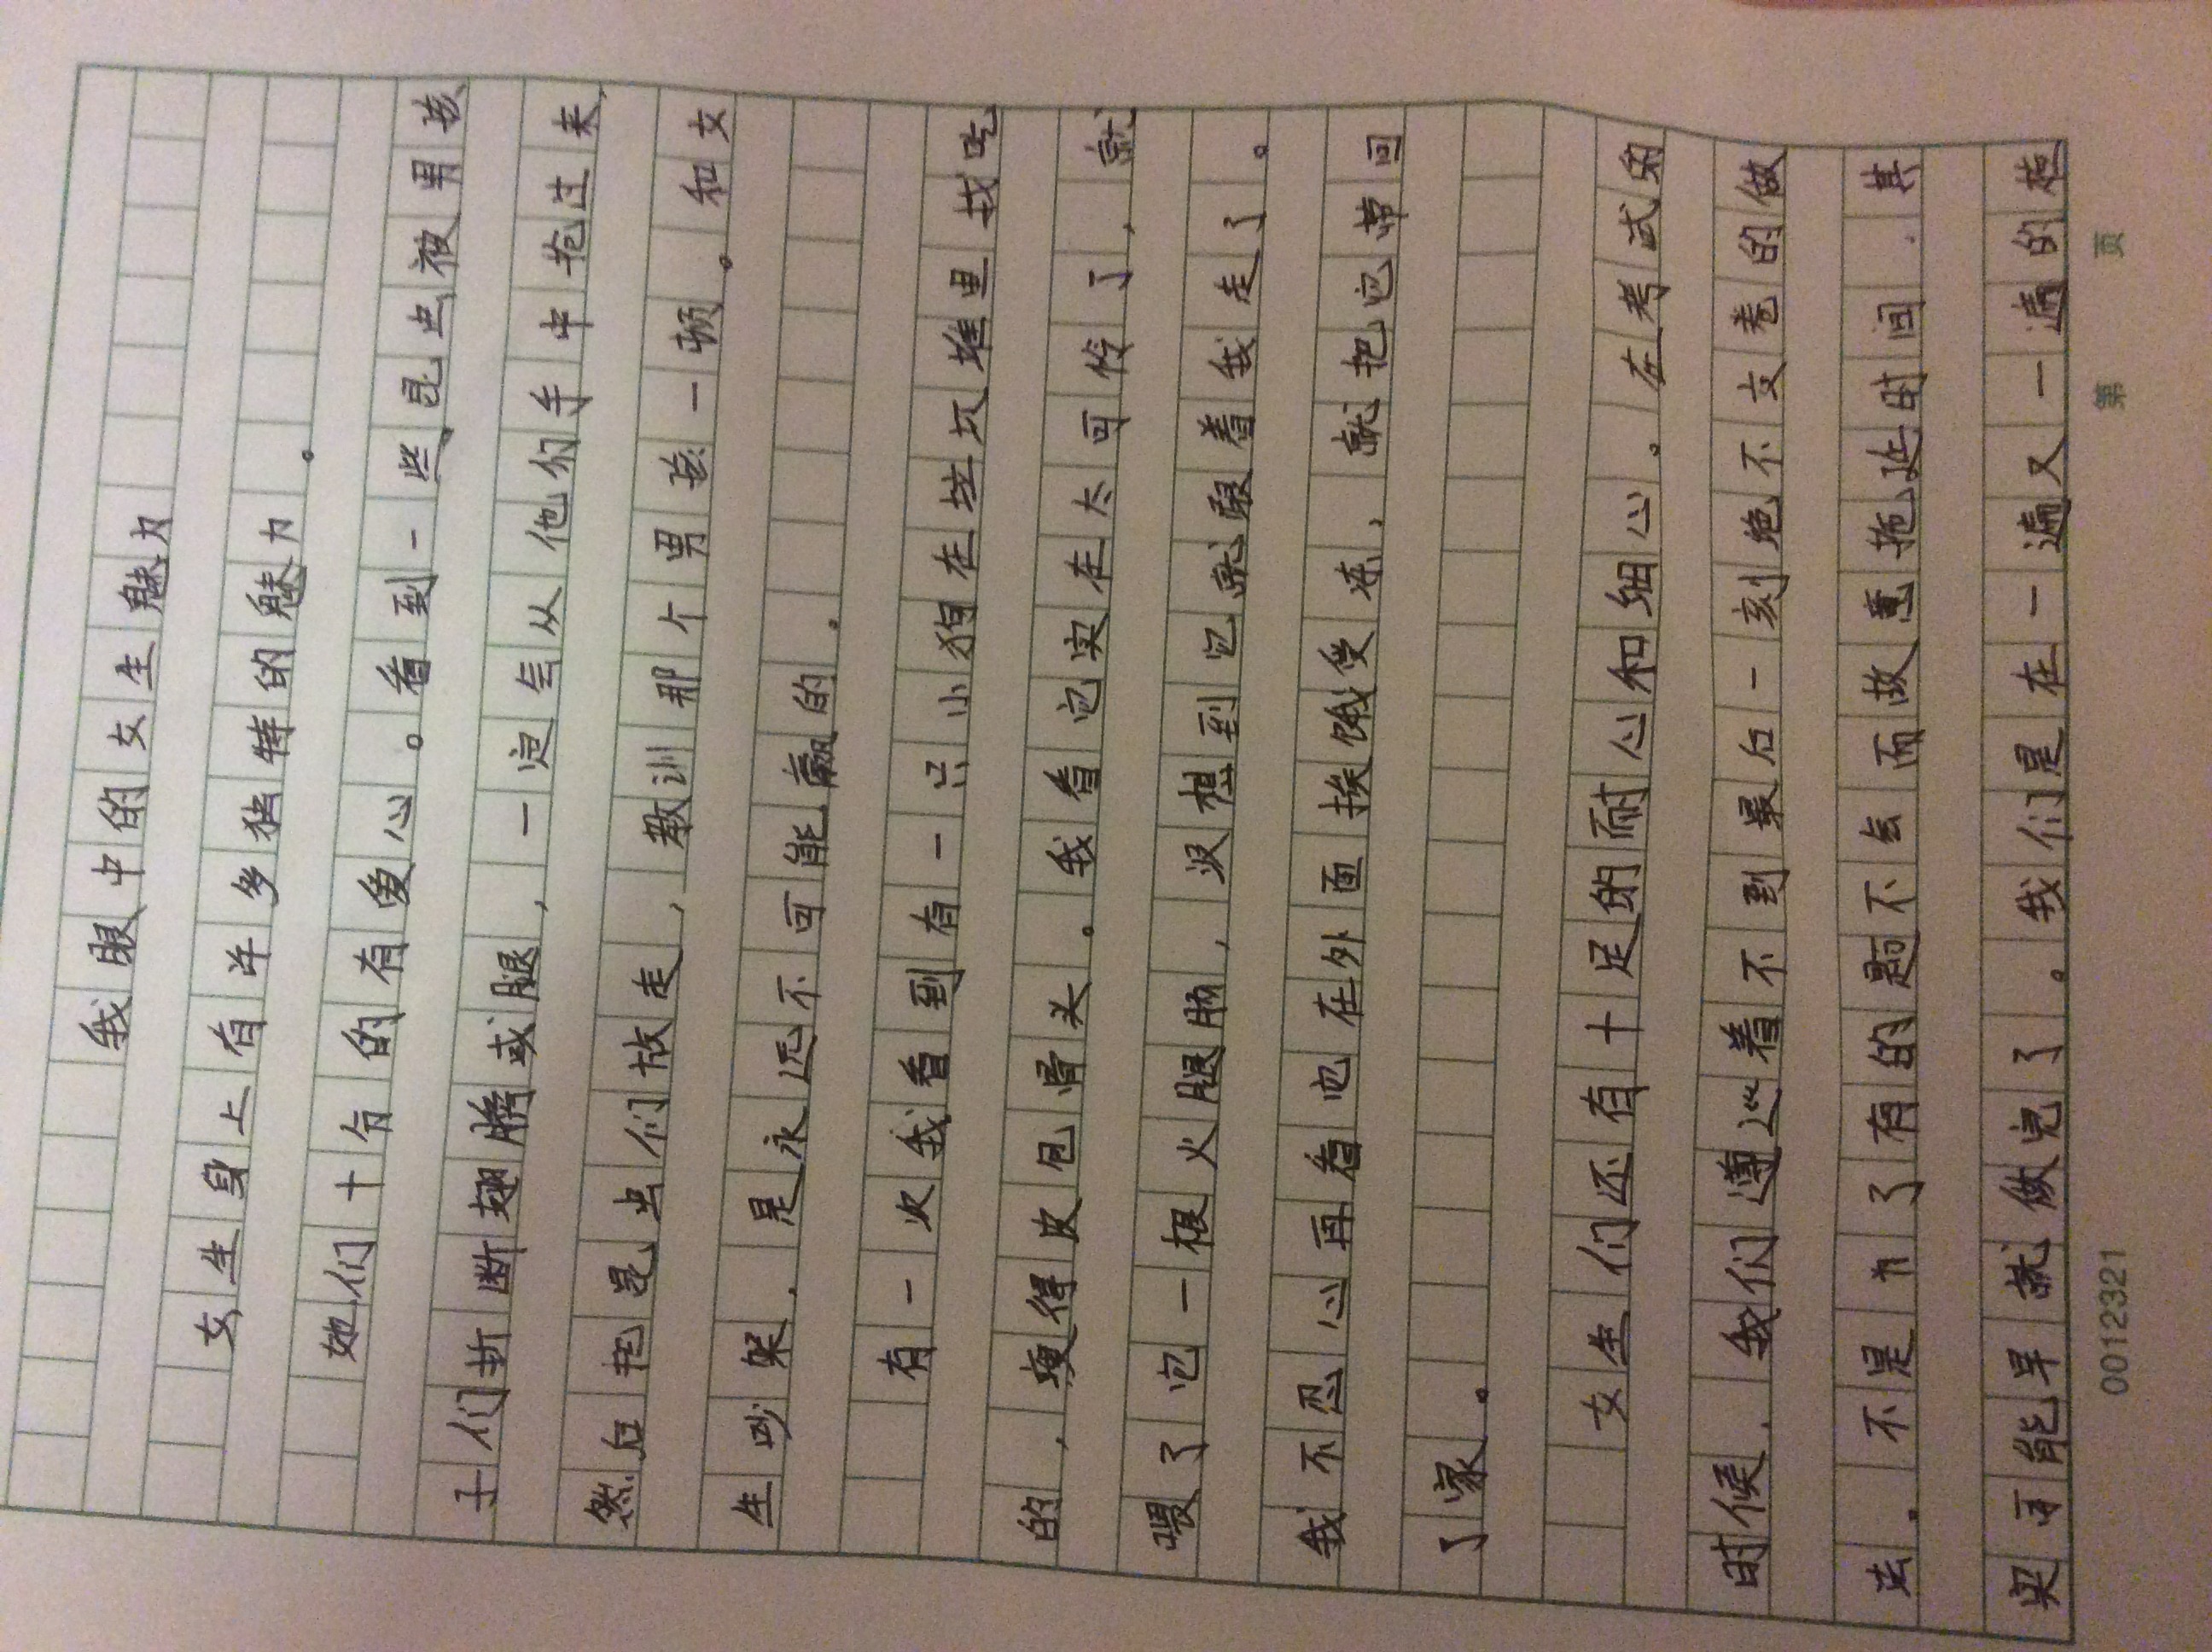 我眼中的女生魅力
女生身上有许多独特的魅力。
她们十分的有爱心。看到一些昆虫被男孩
子们折断翅膀或腿,一定会从他们手中抢过来,
然后把昆虫们放走,教训那个男孩一顿。和女
生吵架,是永远不可能赢的.
有一次我看到有一只小狗在垃圾堆里找吃
的,瘦得皮包骨头。我看它实在太可怜了,就
喂了它一根火腿肠,没想到它就跟着我走了。
我不忍心再看它在外面挨饿受冻,就把它带回
了家。
女生们还有十足的耐心和细心.在考试的
时候,我们遵巡着不到最后一刻绝不交卷的做
法.不是为了有的题不会而故意拖延时间.其
实可能早就做完了。我们是在一遍又一遍的检
0012321 第 页